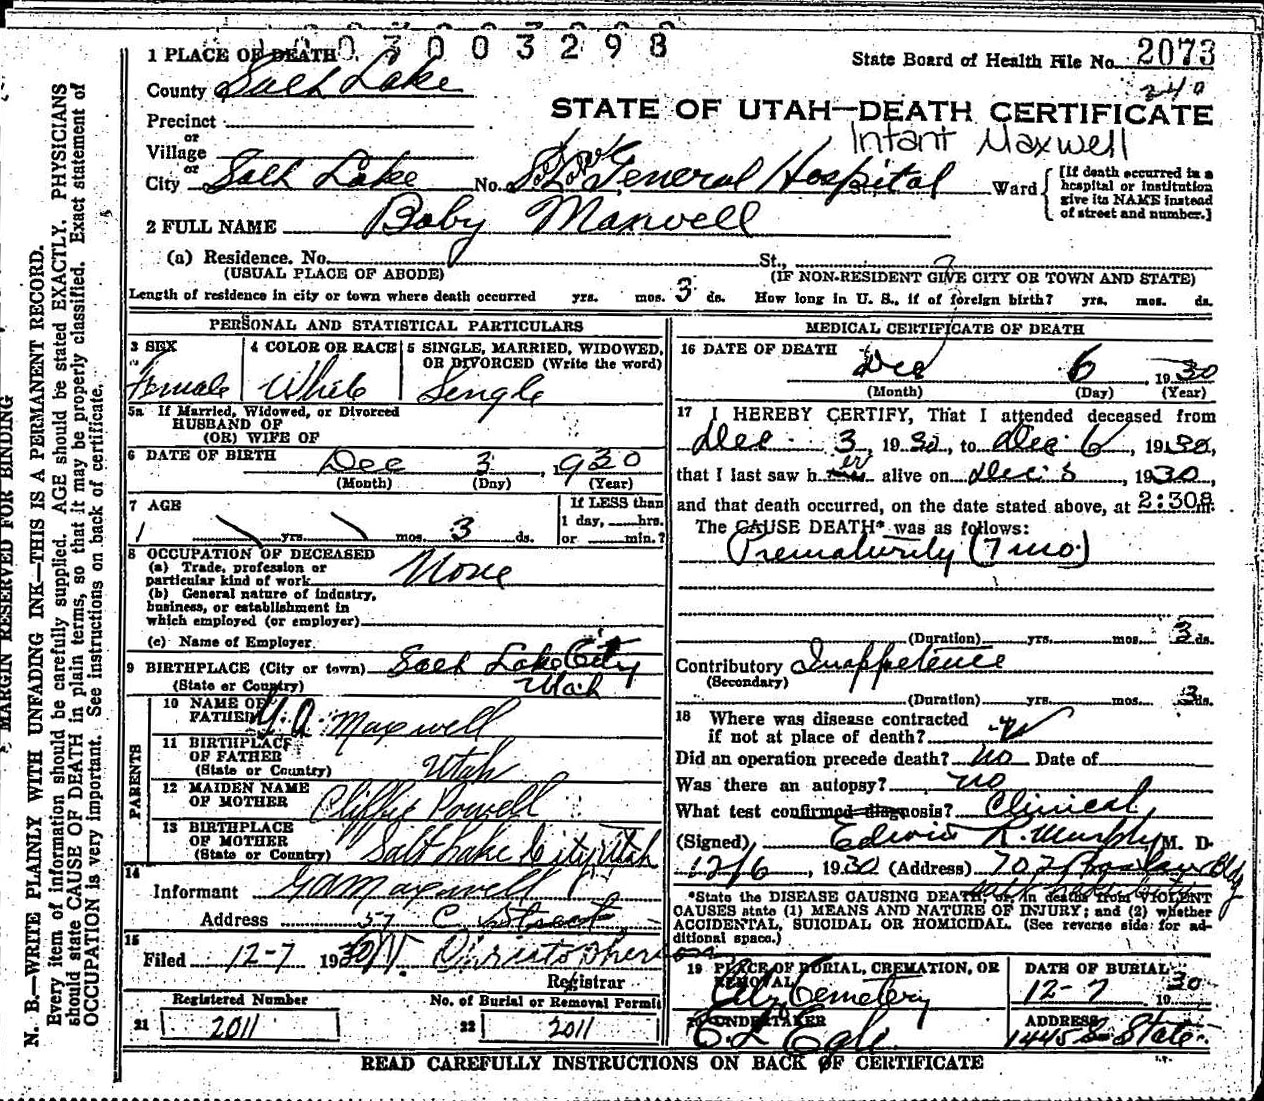 1003003298
1 PLACE OF DEATH
State Board of Health File No. 2073
County Salt Lake
240
STATE OF UTAH—DEATH CERTIFICATE
Precinct
or
Infant Maxwell
Village
or
City Salt Lake No. General Hospital Ward
[If death occurred in a hospital or institution give its NAME instead of street and number.]
2 FULL NAME Baby Maxwell
(a) Residence. No. St.,
(USUAL PLACE OF ABODE) (IF NON-RESIDENT GIVE CITY OR TOWN AND STATE)
Length of residence in city or town where death occurred yrs. mos. 3 ds. How long in U. S., if of foreign birth? yrs. mos. ds.
PERSONAL AND STATISTICAL PARTICULARS
3 SEX 4 COLOR OR RACE 5 SINGLE, MARRIED, WIDOWED,
OR DIVORCED (Write the word)
Female White Single
5a If Married, Widowed, or Divorced
HUSBAND OF
(OR) WIFE OF
6 DATE OF BIRTH Dec 3, 1930
(Month) (Day) (Year)
7 AGE If LESS than
1 day, hrs.
yrs. mos. 3 ds. or min.?
8 OCCUPATION OF DECEASED
(a) Trade, profession or
particular kind of work None
(b) General nature of industry,
business, or establishment in
which employed (or employer)
(c) Name of Employer
9 BIRTHPLACE (City or town) Salt Lake City
(State or Country) Utah
PARENTS
10 NAME OF
FATHER G. A. Maxwell
11 BIRTHPLACE
OF FATHER
(State or Country) Utah
12 MAIDEN NAME
OF MOTHER Cliffie Powell
13 BIRTHPLACE
OF MOTHER
(State or Country) Salt Lake City Utah
14
Informant G A Maxwell
Address 57 C Street
15
Filed 12-7 1930
Registrar
Registered Number No. of Burial or Removal Permit
21 2011 22 2011
MEDICAL CERTIFICATE OF DEATH
16 DATE OF DEATH
Dec 6, 1930
(Month) (Day) (Year)
17 I HEREBY CERTIFY, That I attended deceased from
Dec 3, 1930, to Dec 6, 1930,
that I last saw h er alive on Dec 5, 1930,
and that death occurred, on the date stated above, at 2:30 m.
The CAUSE DEATH* was as follows:
Prematurity (7 mo.)
(Duration) yrs. mos. 3 ds.
Contributory Inappetence
(Secondary)
(Duration) yrs. mos. 3 ds.
18 Where was disease contracted
if not at place of death?
Did an operation precede death? no Date of
Was there an autopsy? no
What test confirmed diagnosis? Clinical
(Signed) Edwin R. Murphy M. D.
12/6, 1930 (Address) 707 Bldg
*State the DISEASE CAUSING DEATH, or, in deaths from VIOLENT
CAUSES state (1) MEANS AND NATURE OF INJURY; and (2) whether
ACCIDENTAL, SUICIDAL OR HOMICIDAL. (See reverse side for ad-
ditional space.)
19 PLACE OF BURIAL, CREMATION, OR
REMOVAL
City Cemetery
DATE OF BURIAL
12-7 1930
20 UNDERTAKER
ADDRESS
1445 So State
READ CAREFULLY INSTRUCTIONS ON BACK OF CERTIFICATE
MARGIN RESERVED FOR BINDING
N. B.—WRITE PLAINLY WITH UNFADING INK—THIS IS A PERMANENT RECORD.
Every item of information should be carefully supplied. AGE should be stated EXACTLY. PHYSICIANS
should state CAUSE OF DEATH in plain terms, so that it may be properly classified. Exact statement of
OCCUPATION is very important. See instructions on back of certificate.